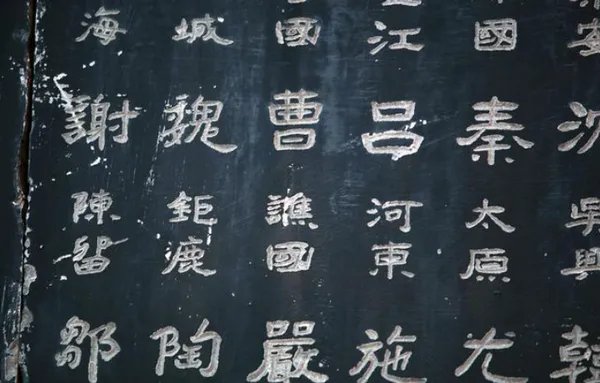 安沈吳興韓
國秦太原尤
江呂河東施
國曹譙國嚴
城魏鉅鹿陶
海謝陳留鄒